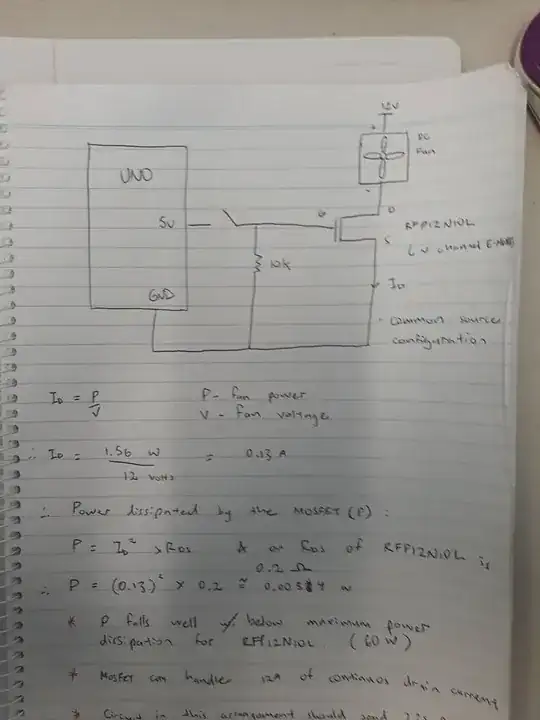 12V
+
DC
Fan
-
UNO
5V
GND
10k
G
D
S
RFP12N10L
(N channel E-MOSFET)
ID
- common source
configuration
ID = P/V
P - fan power
V - Fan voltage
∴ ID = 1.56 W / 12 volts = 0.13 A
∴ Power dissipated by the MOSFET (P) :
P = ID² x RDS * on RDS of RFP12N10L is
0.2 Ω
∴ P = (0.13)² x 0.2 ≅ 0.00334 W
* P falls well below maximum power
dissipation for RFP12N10L (60 W)
* Mosfet can handle 12A of continuos drain current
* Circuit in this arrangement should